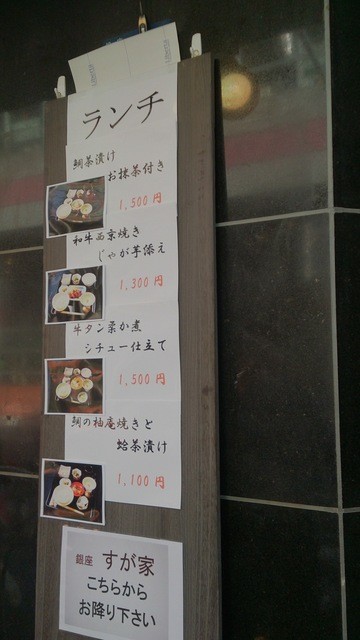 ランチ
鯛茶漬け
お抹茶付き
1,500円
和牛西京焼き
じゃが芋添え
1,300円
牛タン柔か煮
シチュー仕立て
1,500円
鯛の柚庵焼きと
蛤茶漬け
1,100円
銀座 すが家
こちらから
お降り下さい